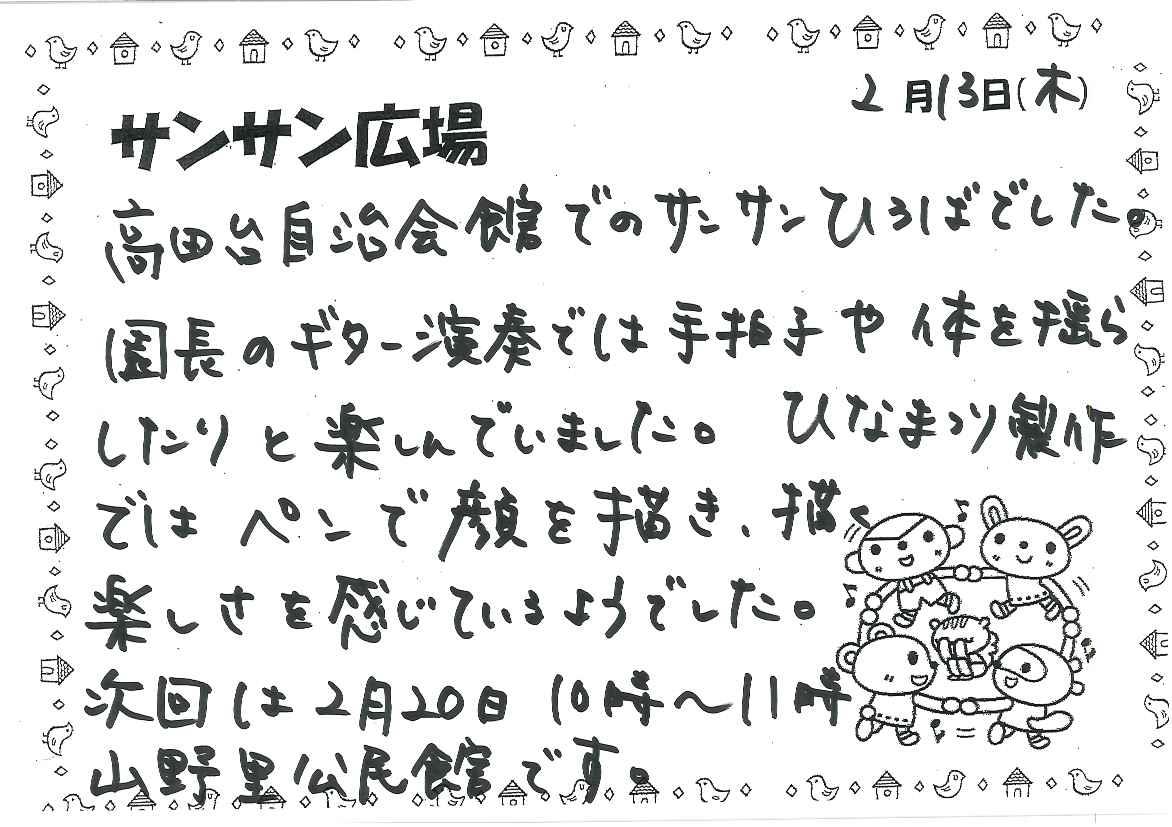 2月13日(木)
サンサン広場
高田台自治会館でのサンサンひろばでした。
園長のギター演奏では手拍子や体を揺ら
したりと楽しんでいました。 ひなまつり製作
では ペンで顔を描き、描く
楽しさを感じているようでした。
次回は2月20日 10時〜11時
山野里公民館です。